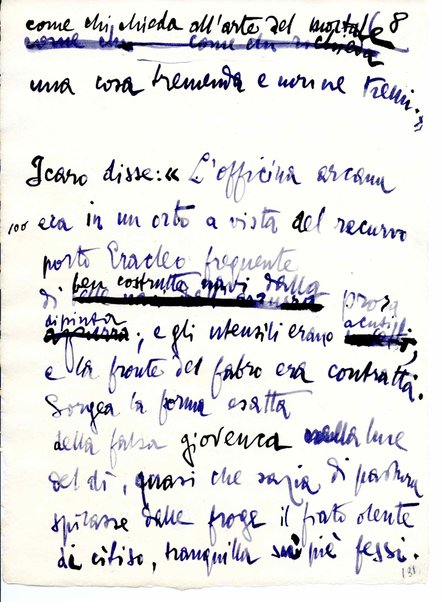 come chi chieda all'arte del mortale 68
come chi come chi richieda
una cosa tremenda e non ne tremi.»
Icaro disse: « L'officina arcana
100 era in un orto a vista del recurvo
porto Eracleo frequente
ben costrutta navi dalla
di prora
dipinta acutissi
azzurra; e gli utensili erano
e la fronte del fabro era contratta.
Sorgea la forma esatta
della falsa giovenca nella luce
del dì, quasi che sazia di pastura
spirasse dalle froge il fiato olente
di citiso, tranquilla su' piè fessi.
131